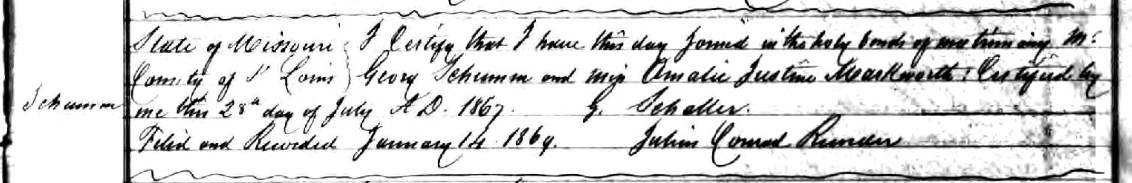 State of Missouri } I Certify that I have this day joined in the holy bonds of matrimony Mr
County of St Louis } Georg Schumm and miss Amalie Justine Markworth. Certified by
Schumm me this 28th day of July A.D. 1867. G. Schaller.
Filed and Recorded January 14 1869. Julius Conrad Recorder